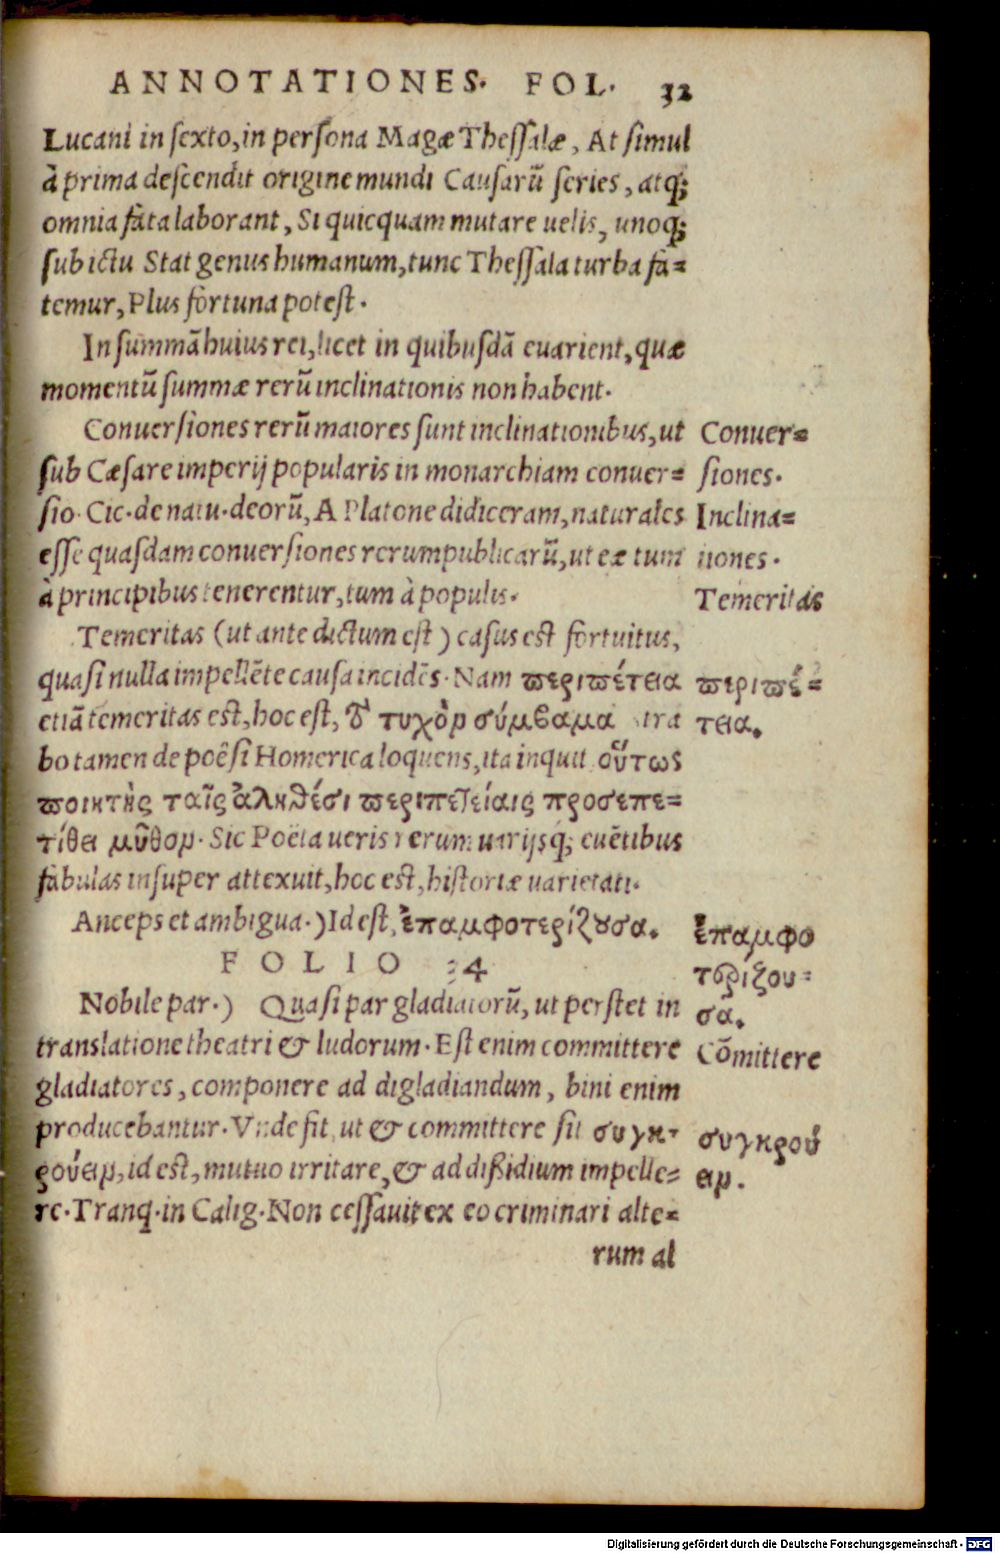 ANNOTATIONES. FOL. 32
Lucani in sexto, in persona Magæ Thessalæ, At simul
à prima descendit origine mundi Causarū series, atq;
omnia fata laborant, Si quicquam mutare uelis, unoq;
sub ictu Stat genus humanum, tunc Thessala turba fa=
temur, Plus fortuna potest.
In summā huius rei, licet in quibusdā euarient, quæ
momentū summæ rerū inclinationis non habent.
Conuersiones rerū maiores sunt inclinationibus, ut
sub Cæsare imperij popularis in monarchiam conuer=
sio. Cic. de natu. deorū, A Platone didiceram, naturales
esse quasdam conuersiones rerumpublicarū, ut eæ tum
à principibus tenerentur, tum à populis.
Temeritas (ut ante dictum est) casus est fortuitus,
quasi nulla impellēte causa incidēs. Nam περιπέτεια
etiā temeritas est, hoc est, τὸ τυχὸν σύμβαμα Stra
bo tamen de poësi Homerica loquens, ita inquit οὕτως
ποιητὴς ταῖς ἀληθέσι περιπετείαις προσεπε=
τίθει μῦθον. Sic Poëta ueris rerum uarijsq; euētibus
fabulas insuper attexuit, hoc est, historiæ uarietati.
Anceps et ambigua.) Id est, ἐπαμφοτερίζουσα.
FOLIO 34
Nobile par.) Quasi par gladiatorū, ut perstet in
translatione theatri & ludorum. Est enim committere
gladiatores, componere ad digladiandum, bini enim
producebantur. Vnde fit, ut & committere sit συγκ=
ρούειν, id est, mutuo irritare, & ad dißidium impelle=
re. Tranq. in Calig. Non cessauit ex eo criminari alte=
rum al
Conuer=
siones.
Inclina=
tiones.
Temeritas
περιπέ=
τεια.
ἐπαμφο
τερίζου=
σα.
Cōmittere
συγκρού
ειν.
Digitalisierung gefördert durch die Deutsche Forschungsgemeinschaft - DFG